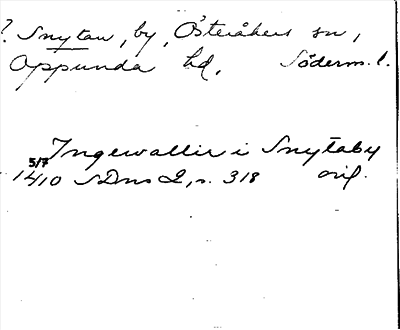 ? Snytan, by, Österåkers sn,
Oppunda hd, Söderm. l.
Ingewaller i Snytaby
5/7
1410 SDns 2, s. 318 orig.